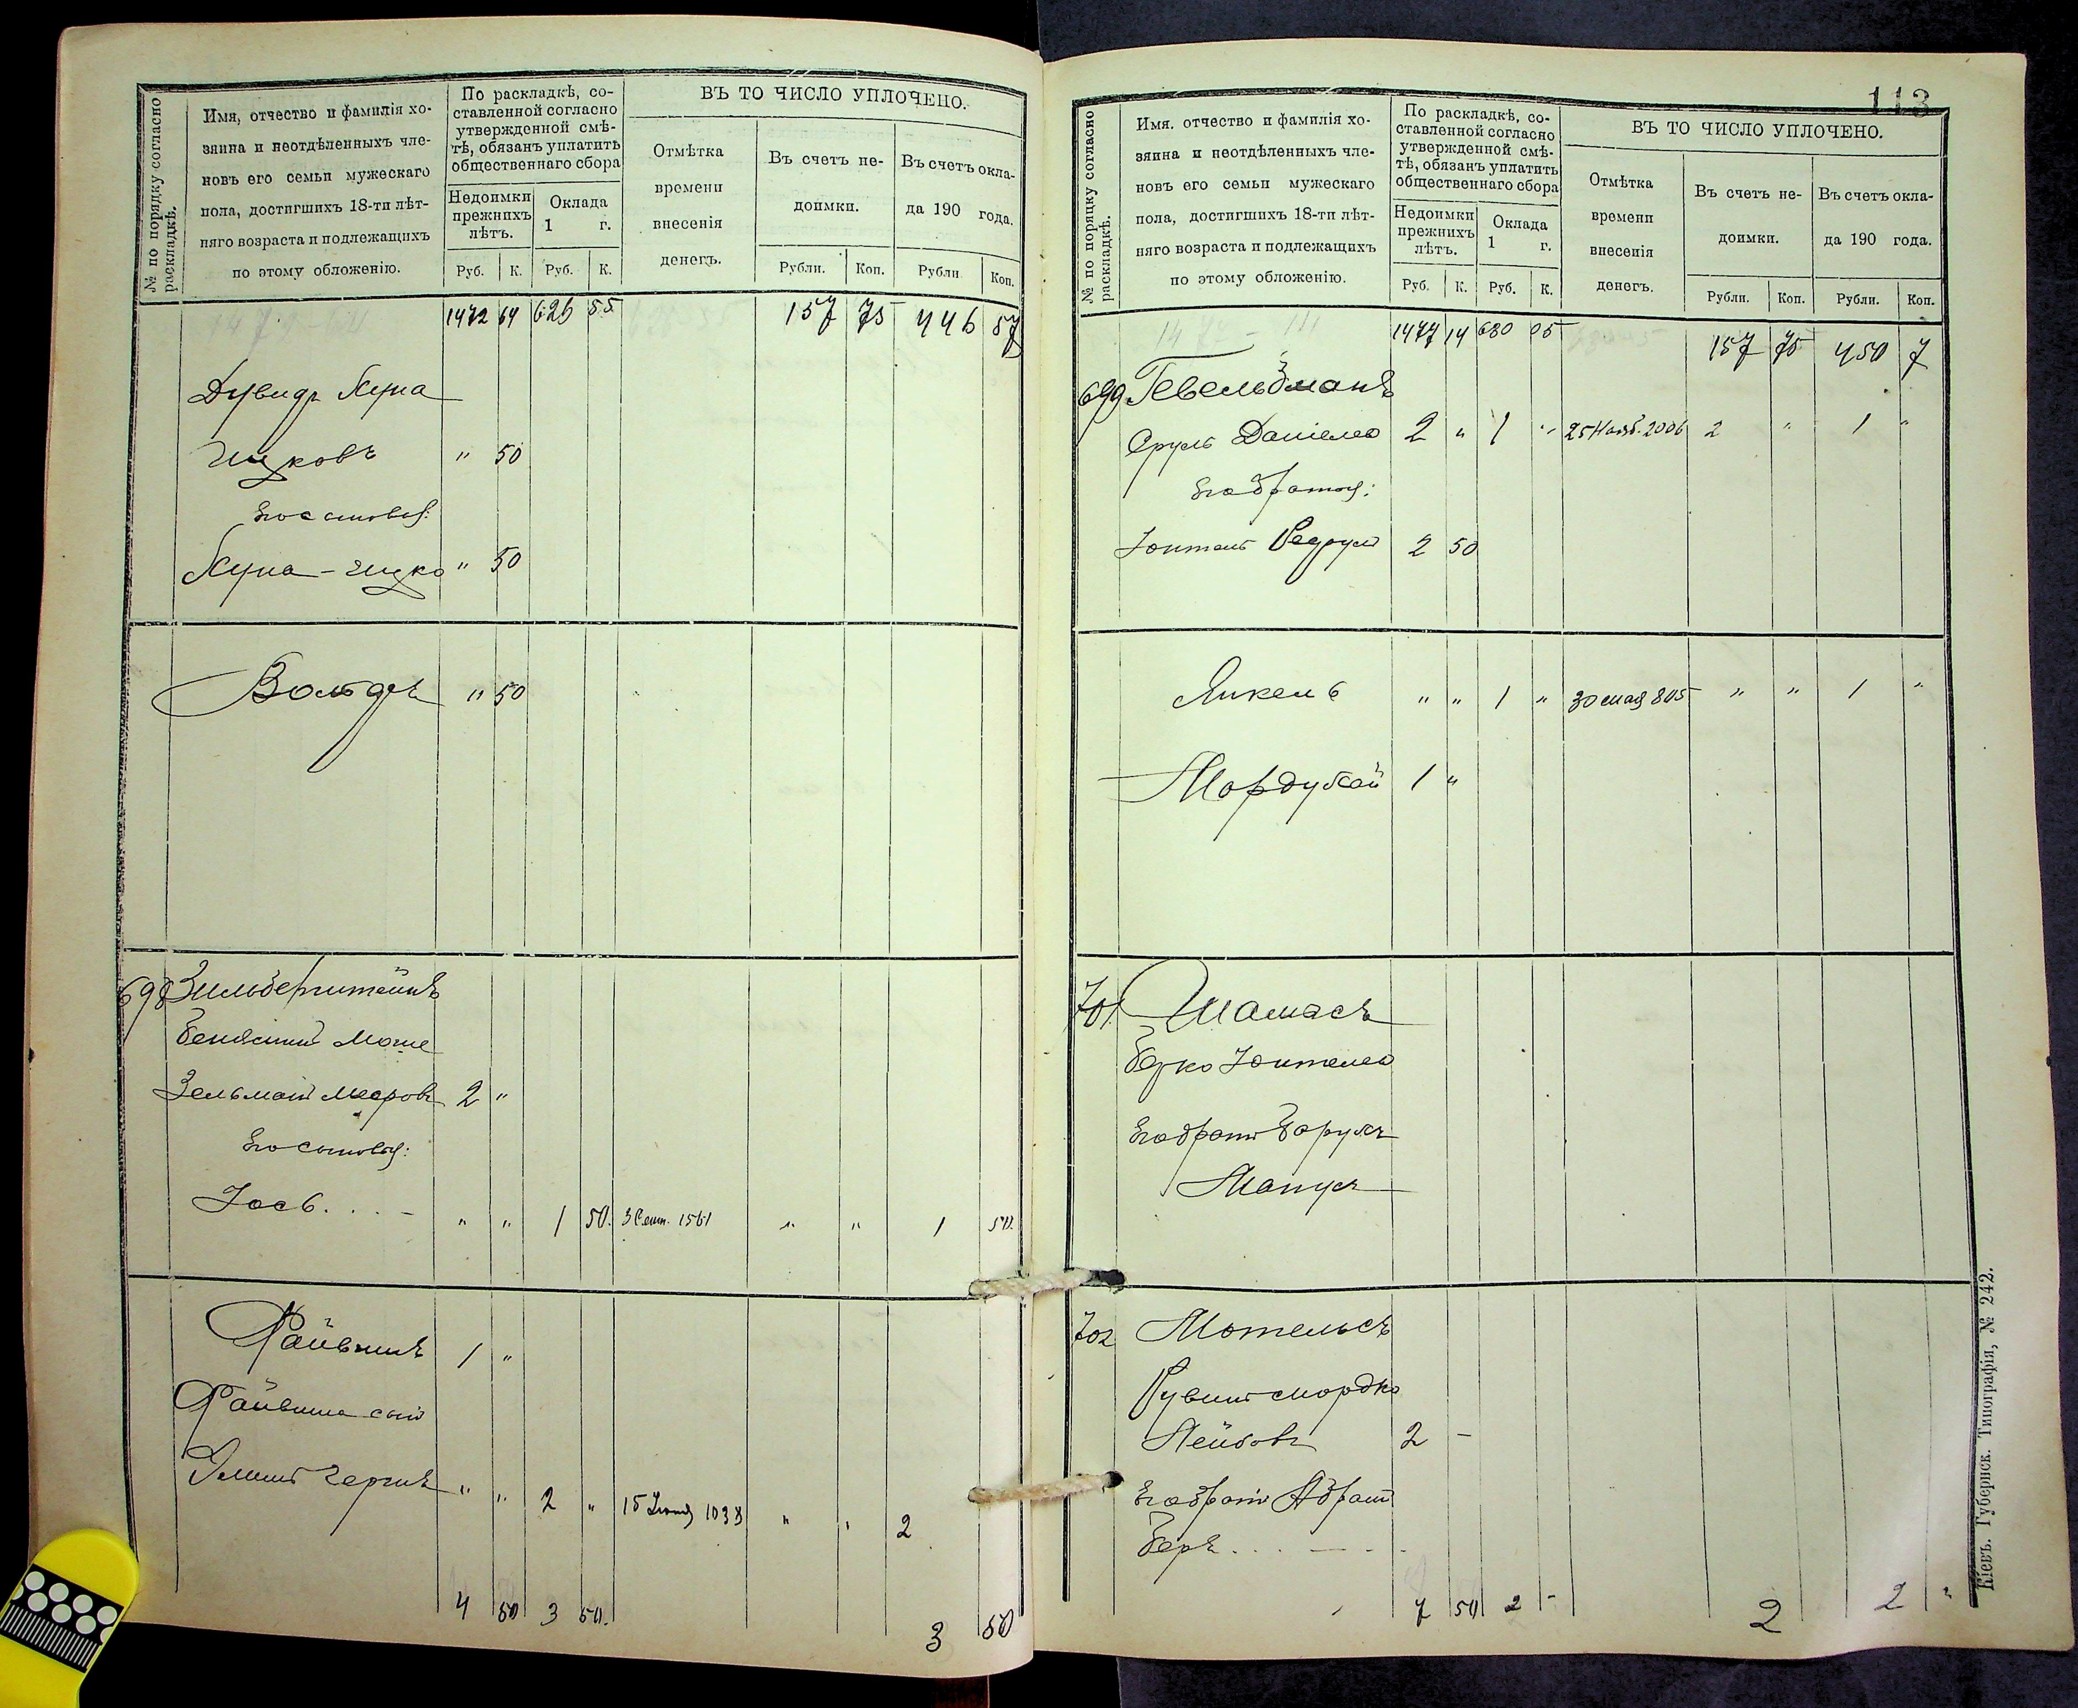 № по порядку согласно раскладкѣ.
Имя, отчество и фамилія хо-
зяина и неотдѣленныхъ чле-
новъ его семьи мужескаго
пола, достигшихъ 18-ти лѣт-
няго возраста и подлежащихъ
по этому обложенію.
По раскладкѣ, со-
ставленной согласно
утвержденной смѣ-
тѣ, обязанъ уплатить
общественнаго сбора
Недоимки прежнихъ лѣтъ.
Оклада 1 г.
Руб. К. Руб. К.
ВЪ ТО ЧИСЛО УПЛОЧЕНО.
Отмѣтка времени внесенія денегъ.
Въ счетъ не-
доимки.
Въ счетъ окла-
да 190 года.
Рубли. Коп. Рубли Коп.
1472 64 626 55 157 75 446 57
Дувидъ Нуха
Ицковъ " 50
Его сыновья:
" 50
Вольфъ " 50
698 Зильберштейнъ
Беніяминъ Моше
Зельманъ Мееровъ 2 "
Его сыновья:
Іось . . . - " " 1 50. 3 Сент. 1561 " " 1 50.
Файвишъ 1 "
Файвиша сынъ
" " 2 " 15 Іюня 1038 " " 2
4 50 3 50. 3 50
113
№ по порядку согласно раскладкѣ.
Имя. отчество и фамилія хо-
зяина и неотдѣленныхъ чле-
новъ его семьи мужескаго
пола, достигшихъ 18-ти лѣт-
няго возраста и подлежащихъ
по этому обложенію.
По раскладкѣ, со-
ставленной согласно
утвержденной смѣ-
тѣ, обязанъ уплатить
общественнаго сбора
Недоимки прежнихъ лѣтъ.
Оклада 1 г.
Руб. К. Руб. К.
ВЪ ТО ЧИСЛО УПЛОЧЕНО.
Отмѣтка времени внесенія денегъ.
Въ счетъ не-
доимки.
Въ счетъ окла-
да 190 года.
Рубли. Коп. Рубли. Коп.
1477 14 630 05 157 75 450 7
699 Гевельдманъ
Сруль Даніелевъ 2 " 1 " 25 Нояб. 2006 2 " 1 "
Его братья:
2 50
Янкель " " 1 " 30 мая 805 " " 1 "
Мордухай 1 "
701 Шамасъ
Берко Іонтелев
Его братъ Борухъ
Манусъ
702 Мотельсъ
Рувинъ Мордко
Лейбовъ 2 -
Его братъ Абрамъ
Беръ . . . - - .
7 50 2 - 2 2 "
Кіевъ. Губернск. Типографія, № 242.